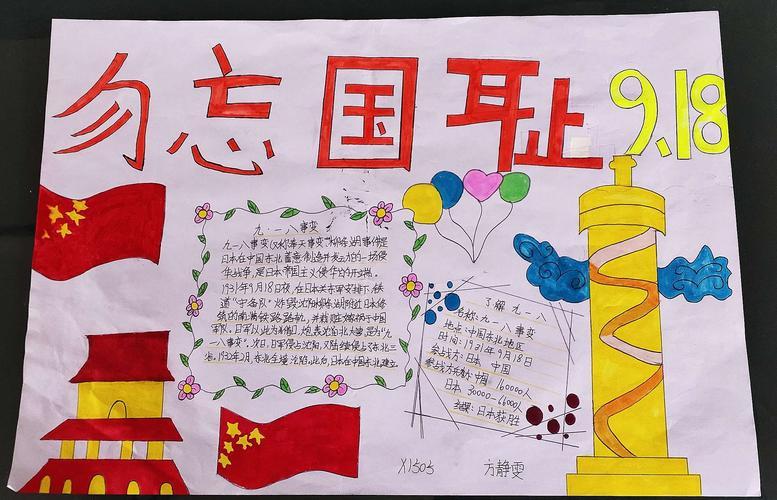 勿忘国耻 9.18
九·一八事变
九一八事变(又称奉天事变、柳条湖事件)是
日本在中国东北蓄意制造并发动的一场侵
华战争,是日本帝国主义侵华的开端。
1931年9月18日夜,在日本关东军安排下,铁
道"守备队"炸毁沈阳柳条湖附近日本修
筑的南满铁路路轨,并栽赃嫁祸于中国
军队。日军以此为借口,炮轰沈阳北大营,是为"九
一八事变"。次日,日军侵占沈阳,又陆续侵占了东北三
省。1932年2月,东北全境沦陷。此后,日本在中国东北建立
了解九一八
名称:九一八事变
地点:中国东北地区
时间:1931年9月18日
参战方:日本 中国
参战方兵力:中国 160000人
日本 30000-66000人
结果:日本获胜
X1503 方静雯